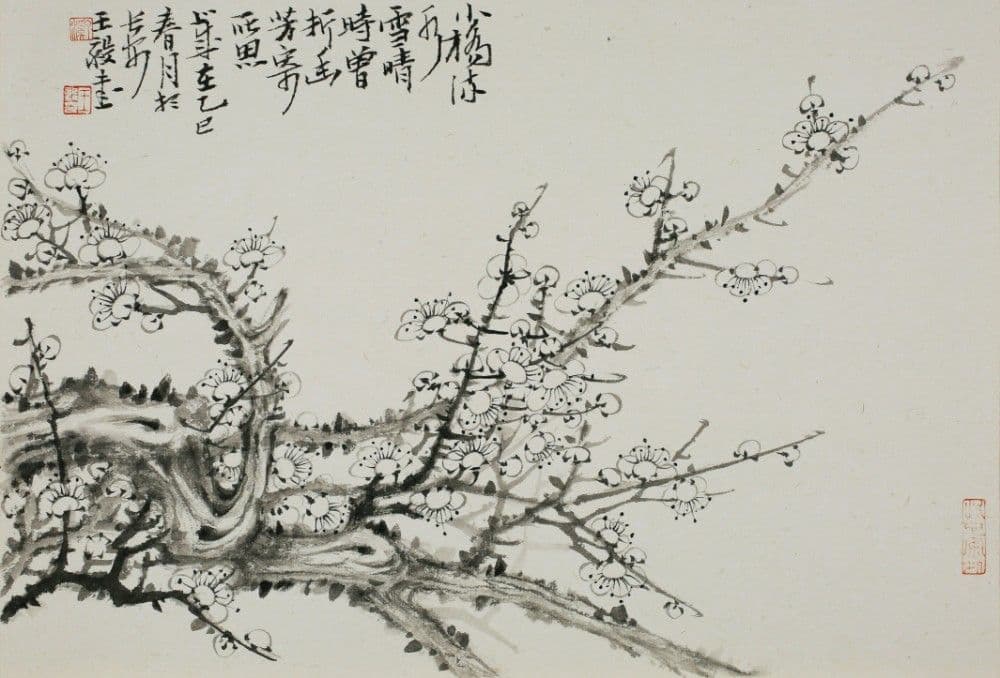 小橋流
水
雪晴
時曾
折幽
芳寄
所思
歲在乙巳
春月於
長安
王毅畫